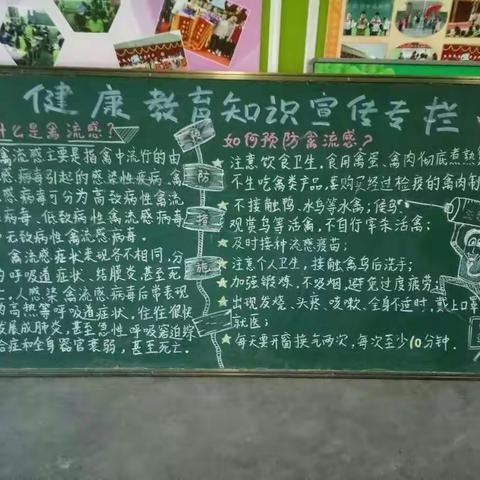 健康教育知识宣传专栏
什么是禽流感?
禽流感主要是指禽中流行的由
感病毒引起的感染性疾病,禽
感病毒可分为高致病性禽流
病毒、低致病性禽流感病毒
无致病性禽流感病毒。
禽流感症状表现各不相同,分
呼吸道症状、结膜炎、甚至死
人感染禽流感病毒后常表现
高热等呼吸道症状,往往很快
发展成肺炎,甚至急性呼吸窘迫综
合症和全身器官衰弱,甚至死亡.
预
防
措
施
如何预防禽流感?
注意饮食卫生,食用禽蛋、禽肉彻底煮熟
不生吃禽类产品,要购买经过检疫的禽肉制
不接触鸭、水鸟等水禽;候鸟
观赏鸟等活禽,不自行宰杀活禽;
及时接种流感疫苗;
注意个人卫生,接触禽鸟后洗手;
加强锻炼、不吸烟,避免过度疲劳
出现发烧、头疼、咳嗽、全身不适时,戴上口罩
就医;
每天要开窗换气两次,每次至少10分钟.